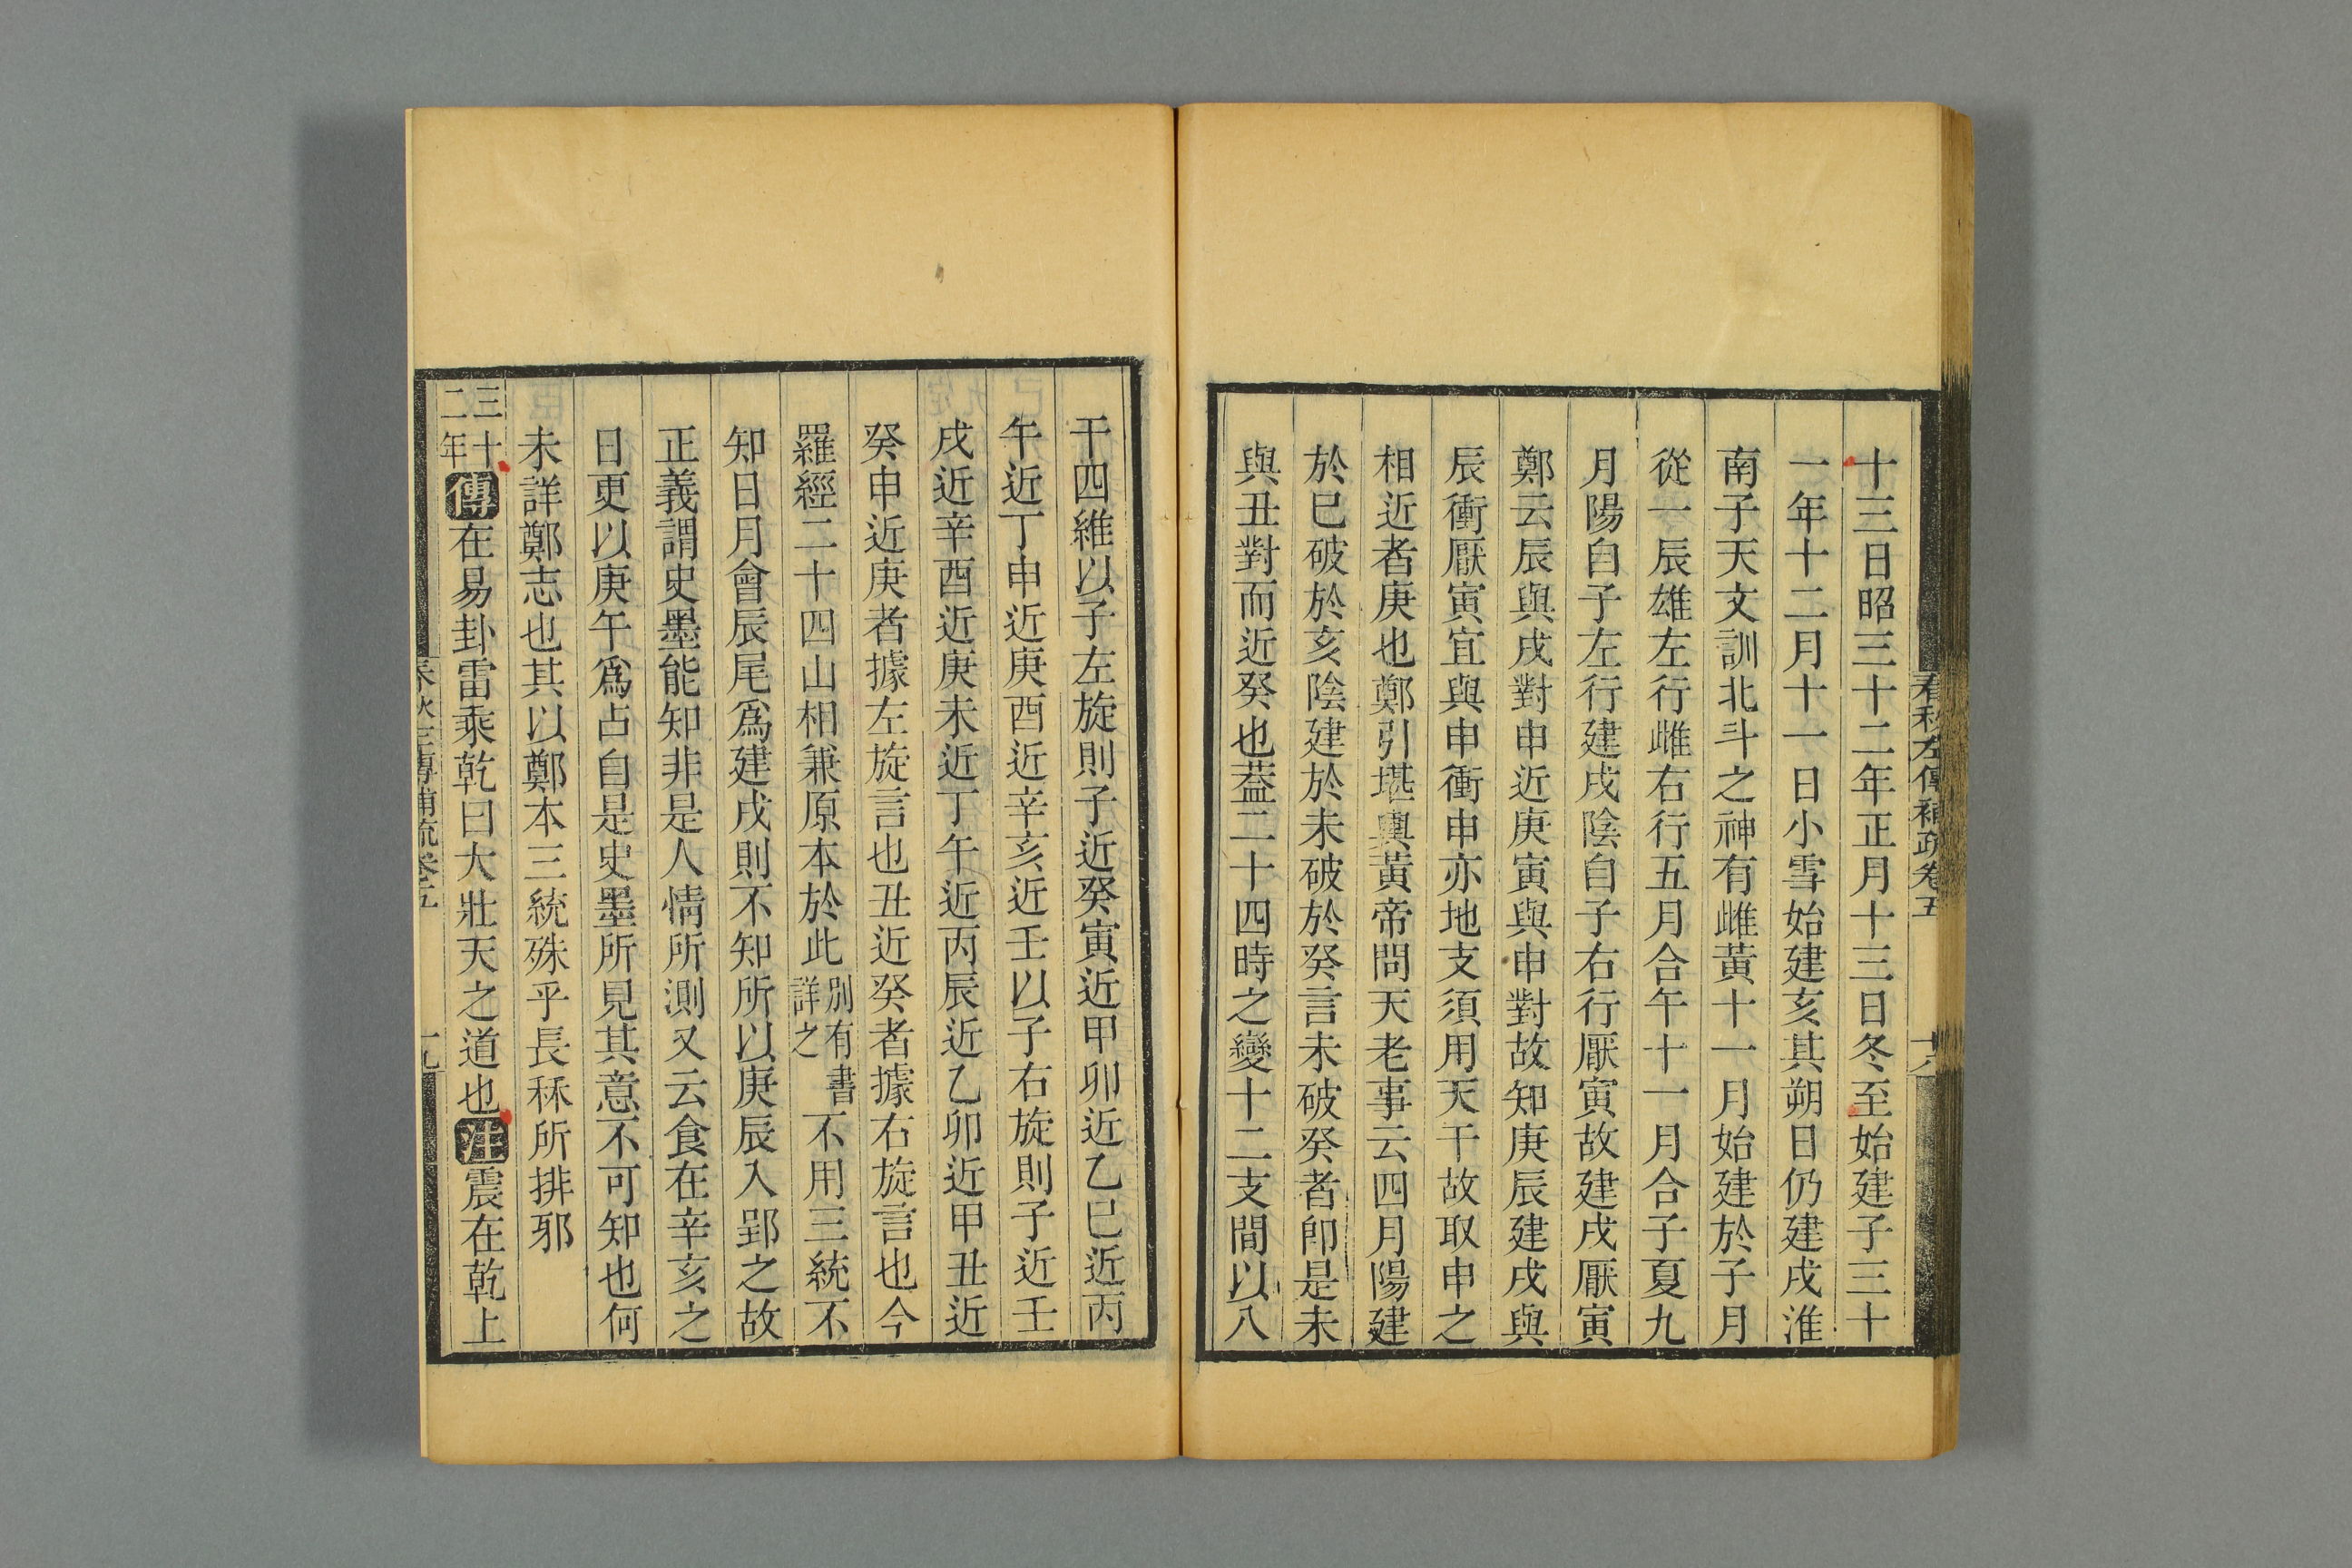 十三日昭三十二年正月十三日冬至始建子三十
一年十二月十一日小雪始建亥其朔日仍建戌淮
南子天文訓北斗之神有雌黃十一月始建於子月
從一辰雄左行雌右行五月合午十一月合子夏九
月陽自子左行建戌陰自子右行厭寅故建戌厭寅
鄭云辰與戌對申近庚寅與申對故知庚辰建戌與
辰衝厭寅宜與申衝申亦地支須用天干故取申之
相近者庚也鄭引堪輿黃帝問天老事云四月陽建
於巳破於亥陰建於未破於癸言未破癸者卽是未
與丑對而近癸也葢二十四時之變十二支間以八
春秋左傳補疏卷五
十八
干四維以子左旋則子近癸寅近甲卯近乙巳近丙
午近丁申近庚酉近辛亥近壬以子右旋則子近壬
戌近辛酉近庚未近丁午近丙辰近乙卯近甲丑近
癸申近庚者據左旋言也丑近癸者據右旋言也今
羅經二十四山相兼原本於此別有書詳之不用三統不
知日月會辰尾爲建戌則不知所以庚辰入郢之故
正義謂史墨能知非是人情所測又云食在辛亥之
日更以庚午爲占自是史墨所見其意不可知也何
未詳鄭志也其以鄭本三統殊乎長秝所排邪
三十二年傳在易卦雷乘乾曰大壯天之道也注震在乾上
十九